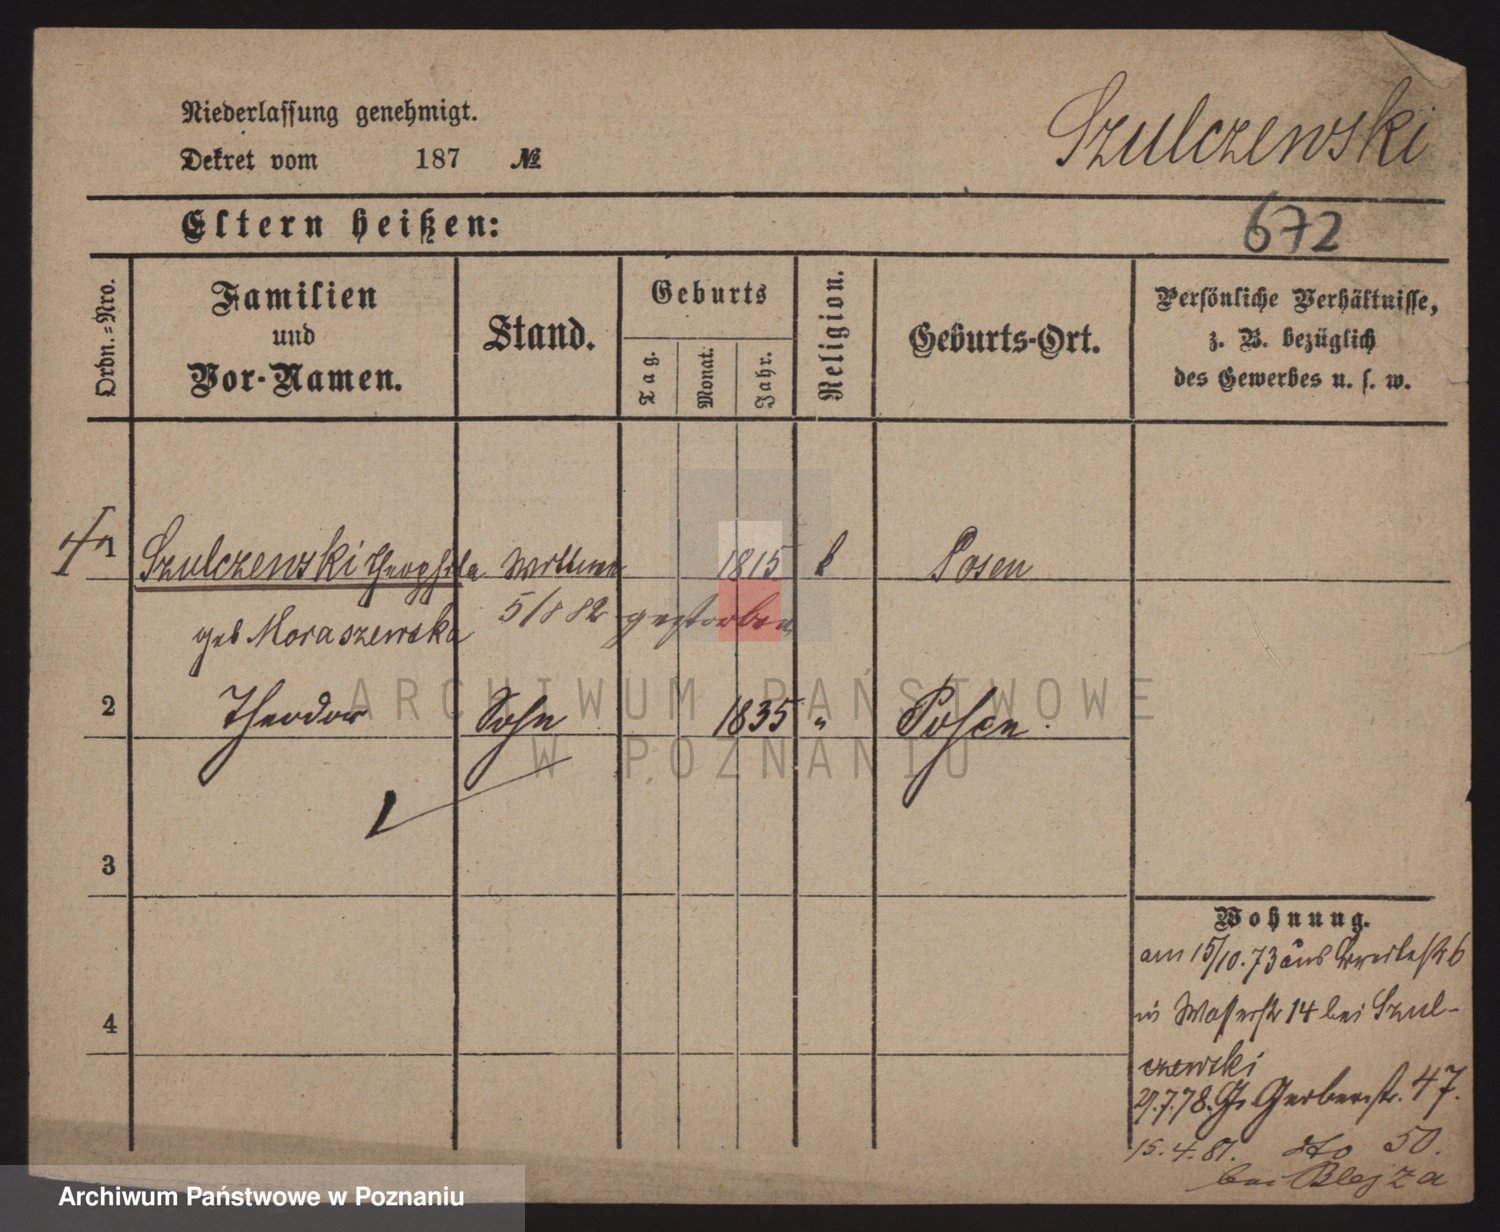 Niederlassung genehmigt.
Dekret vom 187 №
Szulczewski
Eltern heißen:
672
Ordn.=Nro.
Familien
und
Vor-Namen.
Stand.
Geburts
Tag.
Monat.
Jahr.
Religion.
Geburts-Ort.
Persönliche Verhältnisse,
z. B. bezüglich
des Gewerbes u. s. w.
1 Szulczewski Theophila Wittwe 1815 k Posen
geb Moraszewska 5/8 82 gestorben
2 Theodor Sohn 1835 " Posen
3
4
Wohnung.
am 15/10.73 aus Breitestr 6
in Wasserstr 14 bei Szul-
czewski
29.7.78. Gr Gerberstr. 47.
15.4.81. dto 50.
bei Blejza
ARCHIWUM PAŃSTWOWE
W POZNANIU
Archiwum Państwowe w Poznaniu